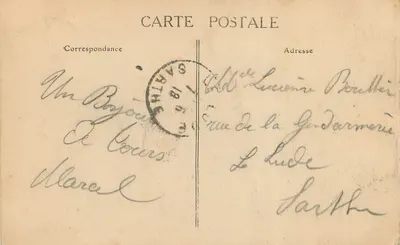 CARTE POSTALE
Correspondance
Adresse
Un Bonjour
de Tours
Marcel
SARTHE
Mlle Lucienne
rue de la Gendarmerie
Le Lude
Sarthe